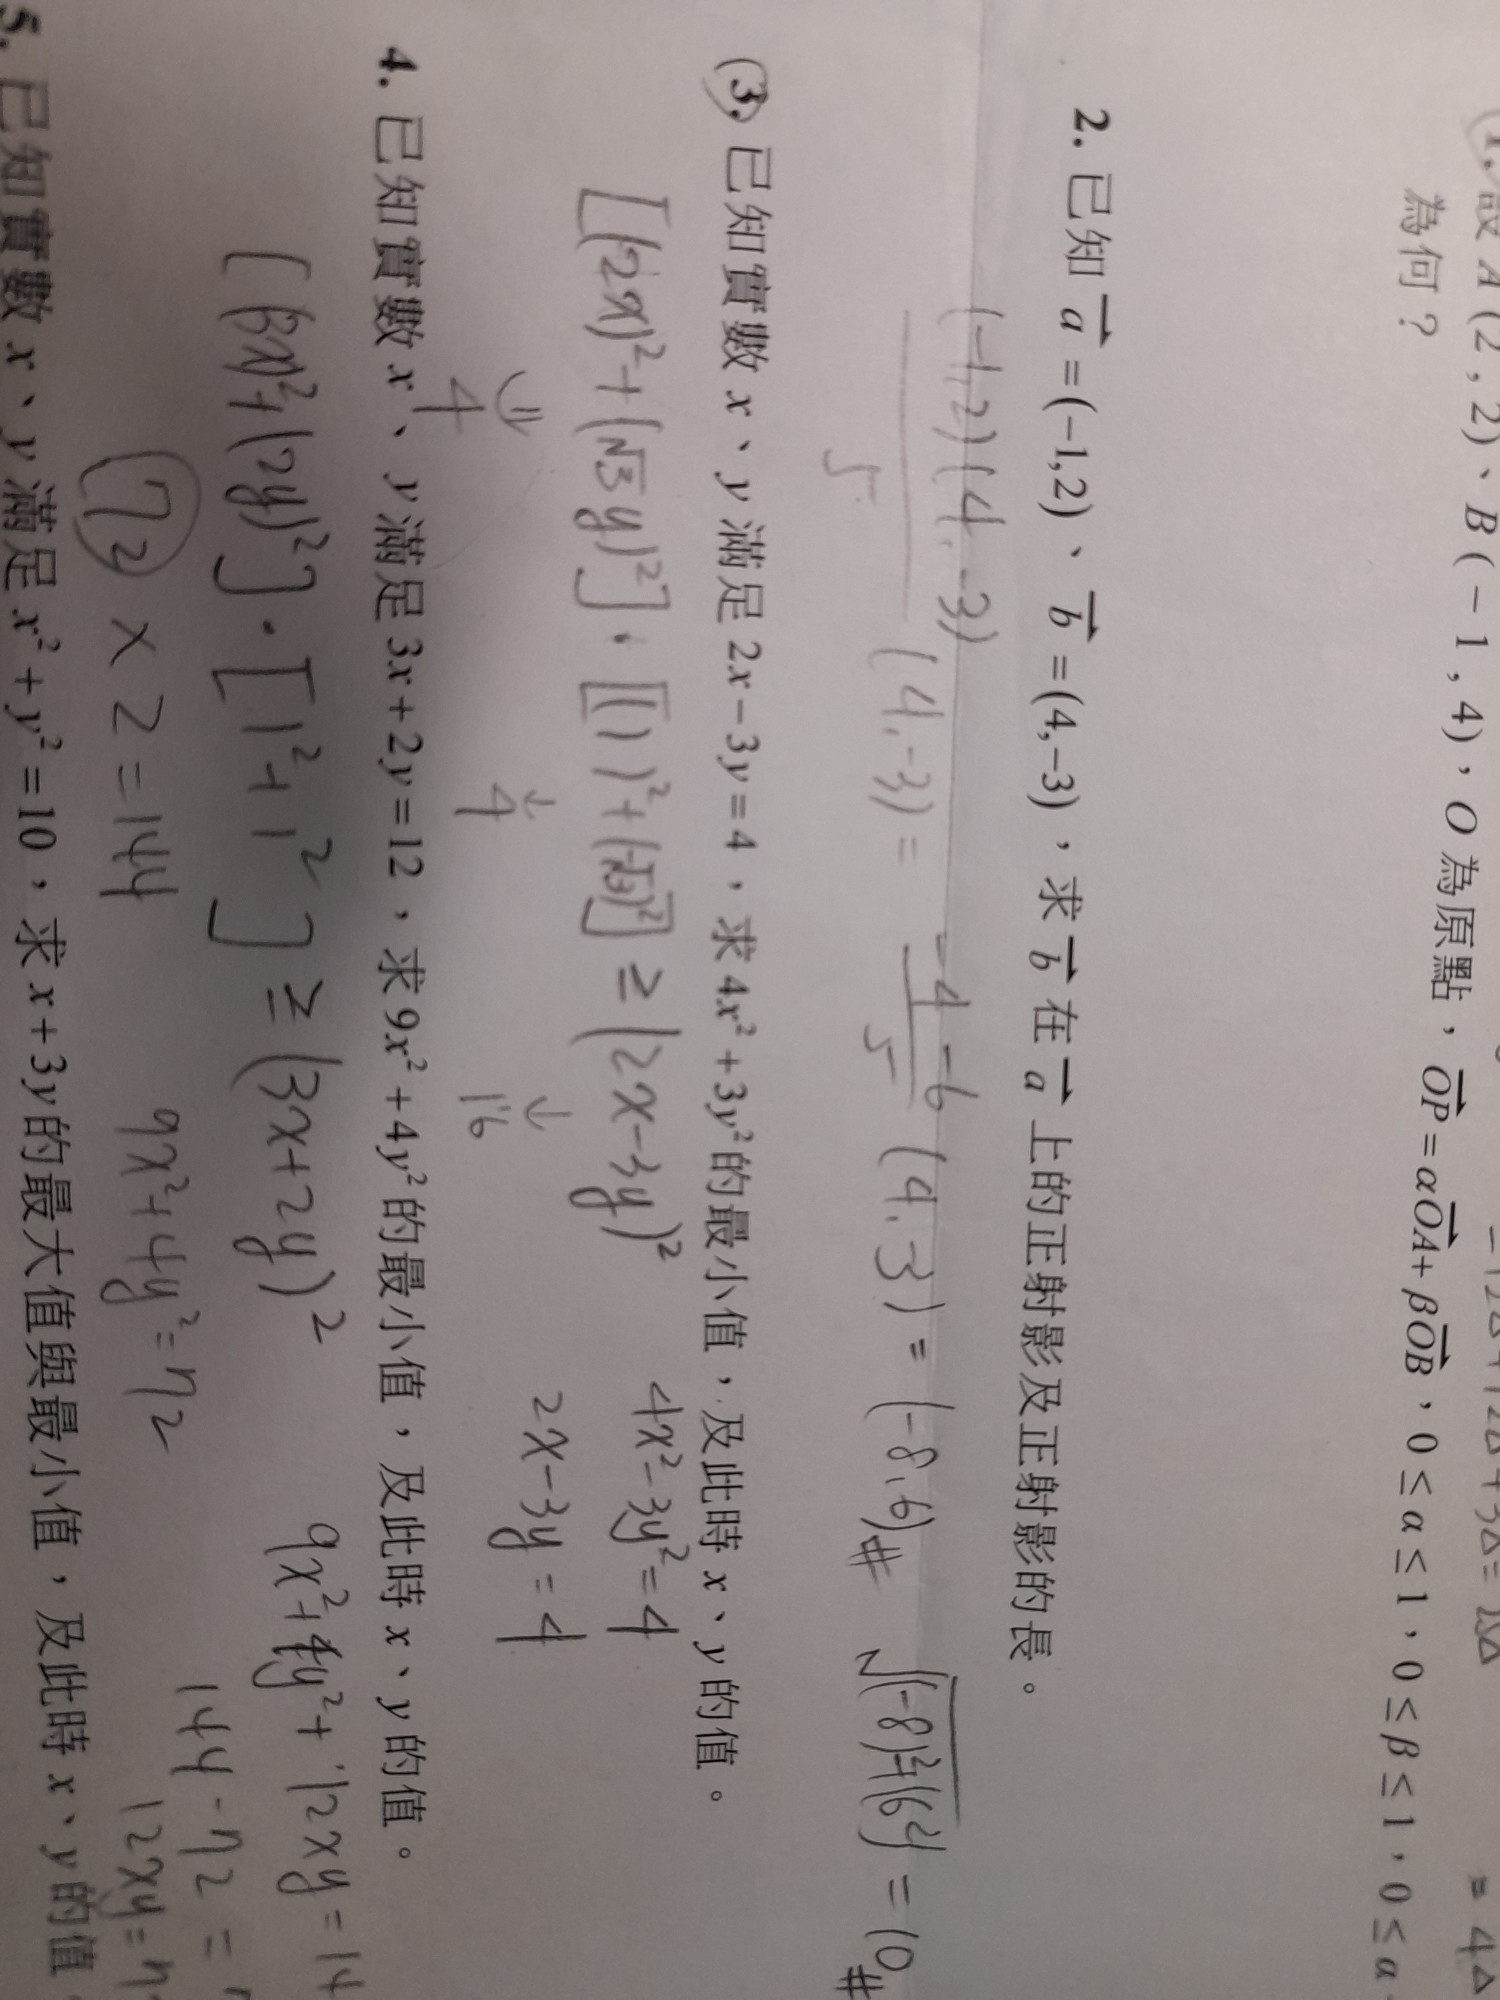 1. 設 A(2,2)、B(-1,4),O 為原點,OP=αOA+βOB,0≤α≤1,0≤β≤1,0≤α
為何?
= 4△
2. 已知 a=(-1,2)、b=(4,-3),求 b 在 a 上的正射影及正射影的長。
(-1,2)(4,-3)/5 (4,-3) = -4-6/5 (4,-3) = (-8,6)# √(-8)²+(6²) = 10#
3. 已知實數 x、y 滿足 2x-3y=4,求 4x²+3y² 的最小值,及此時 x、y 的值。
[(2x)²+(√3y)²]·[(1)²+(-√3)²] ≥ (2x-3y)²
4x²-3y²=4
↓ ↓ ↓
4 4 16
2x-3y=4
4. 已知實數 x、y 滿足 3x+2y=12,求 9x²+4y² 的最小值,及此時 x、y 的值。
[(3x)²+(2y)²]·[1²+1²] ≥ (3x+2y)²
9x²+4y²+12xy=14
72 × 2 = 144
9x²+4y²=72
144-72=
12xy=7
5. 已知實數 x、y 滿足 x²+y²=10,求 x+3y 的最大值與最小值,及此時 x、y 的值